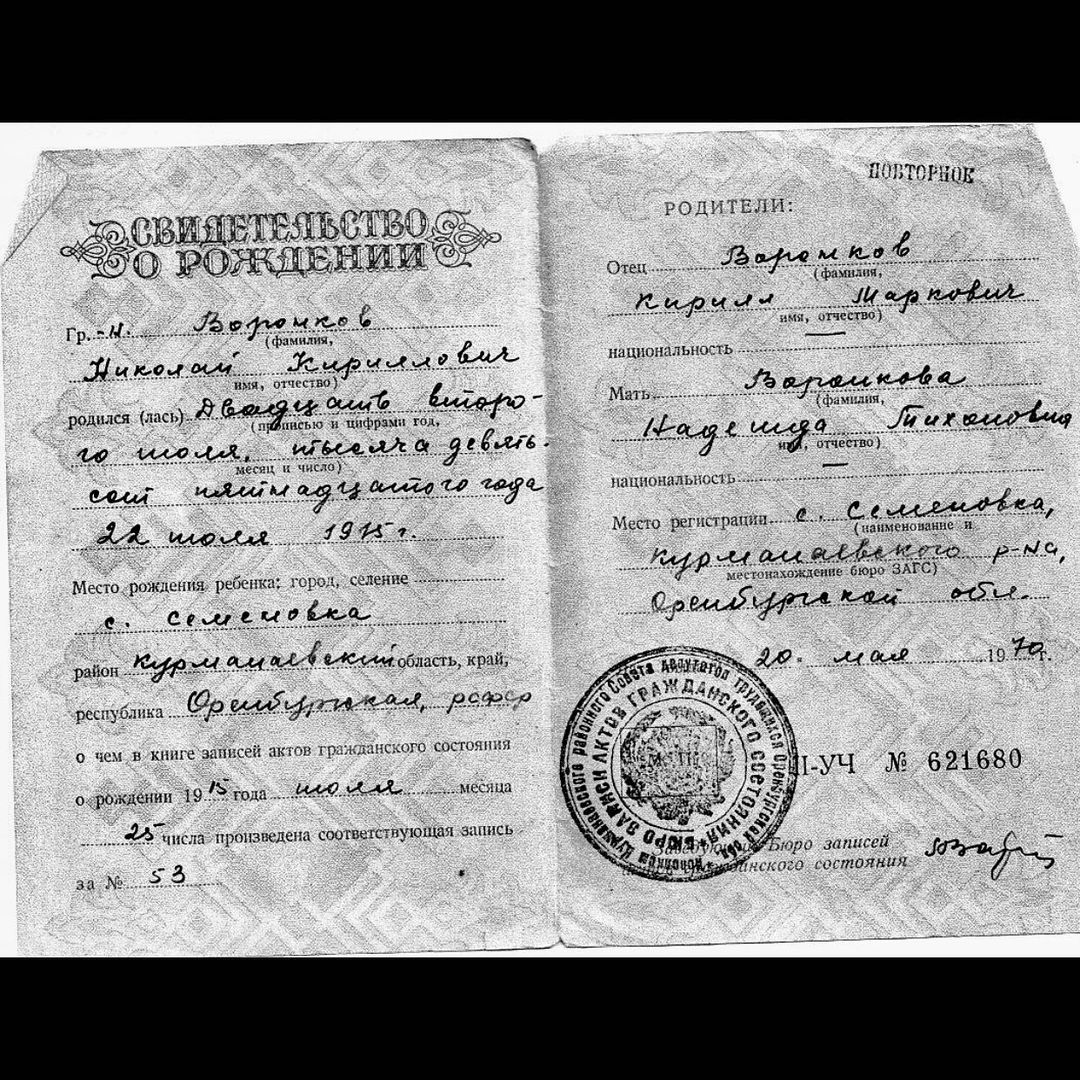 СВИДЕТЕЛЬСТВО
О РОЖДЕНИИ
Гр.-н. Воронков
(фамилия,
Николай Кириллович
имя, отчество)
родился (лась) Двадцать второ-
(прописью и цифрами год,
го июля, тысяча девять-
месяц и число)
сот пятнадцатого года
22 июля 1915 г.
Место рождения ребенка: город, селение
с. Семеновка
район Курманаевский область, край,
республика Оренбургская, РСФСР
о чем в книге записей актов гражданского состояния
о рождении 1915 года июля месяца
25 числа произведена соответствующая запись
за № 53
ПОВТОРНОЕ
РОДИТЕЛИ:
Отец Воронков
(фамилия,
Кирилл Маркович
имя, отчество)
национальность —
Мать Воронкова
(фамилия,
Надежда Тихоновна
имя, отчество)
национальность —
Место регистрации с. Семеновка,
(наименование и
Курманаевского р-на,
местонахождение бюро ЗАГС)
Оренбургской обл.
20. мая 1970 г.
районного Совета депутатов трудящихся Оренбургской обл.
БЮРО ЗАПИСИ АКТОВ ГРАЖДАНСКОГО СОСТОЯНИЯ
-УЧ № 621680
Бюро записей
гражданского состояния